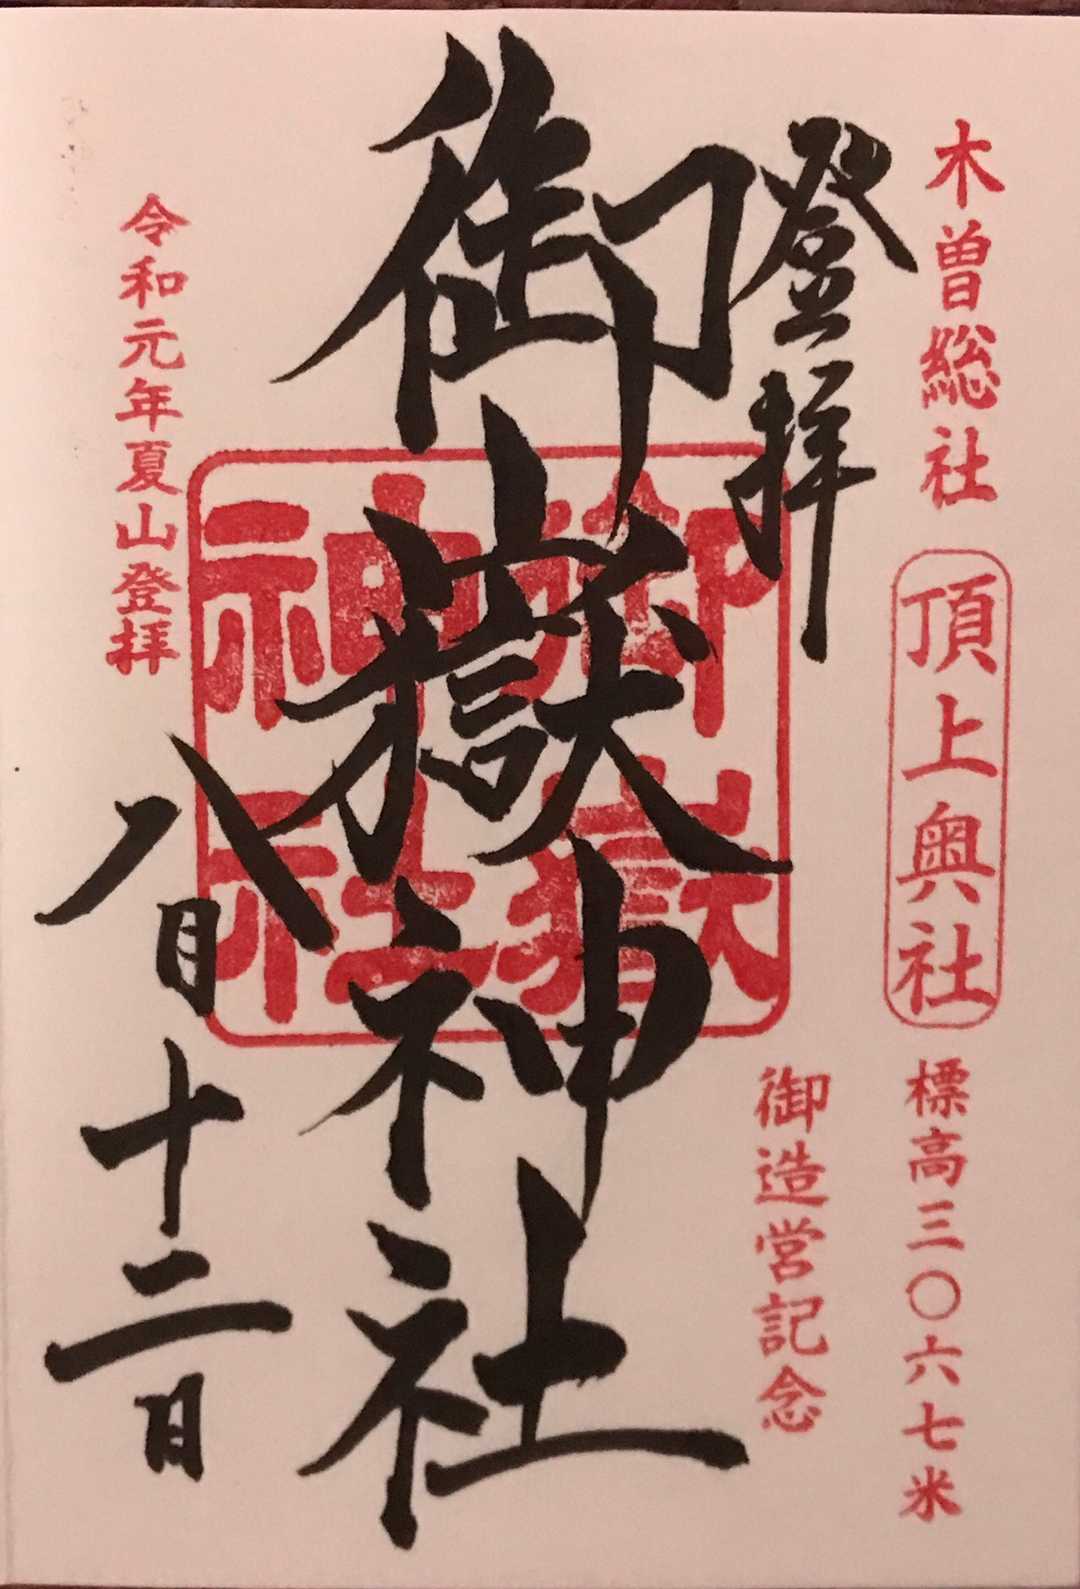 木曽総社
頂上奥社
標高三〇六七米
御造営記念
登拝
御嶽神社
御嶽
神社
令和元年夏山登拝
八月十二日